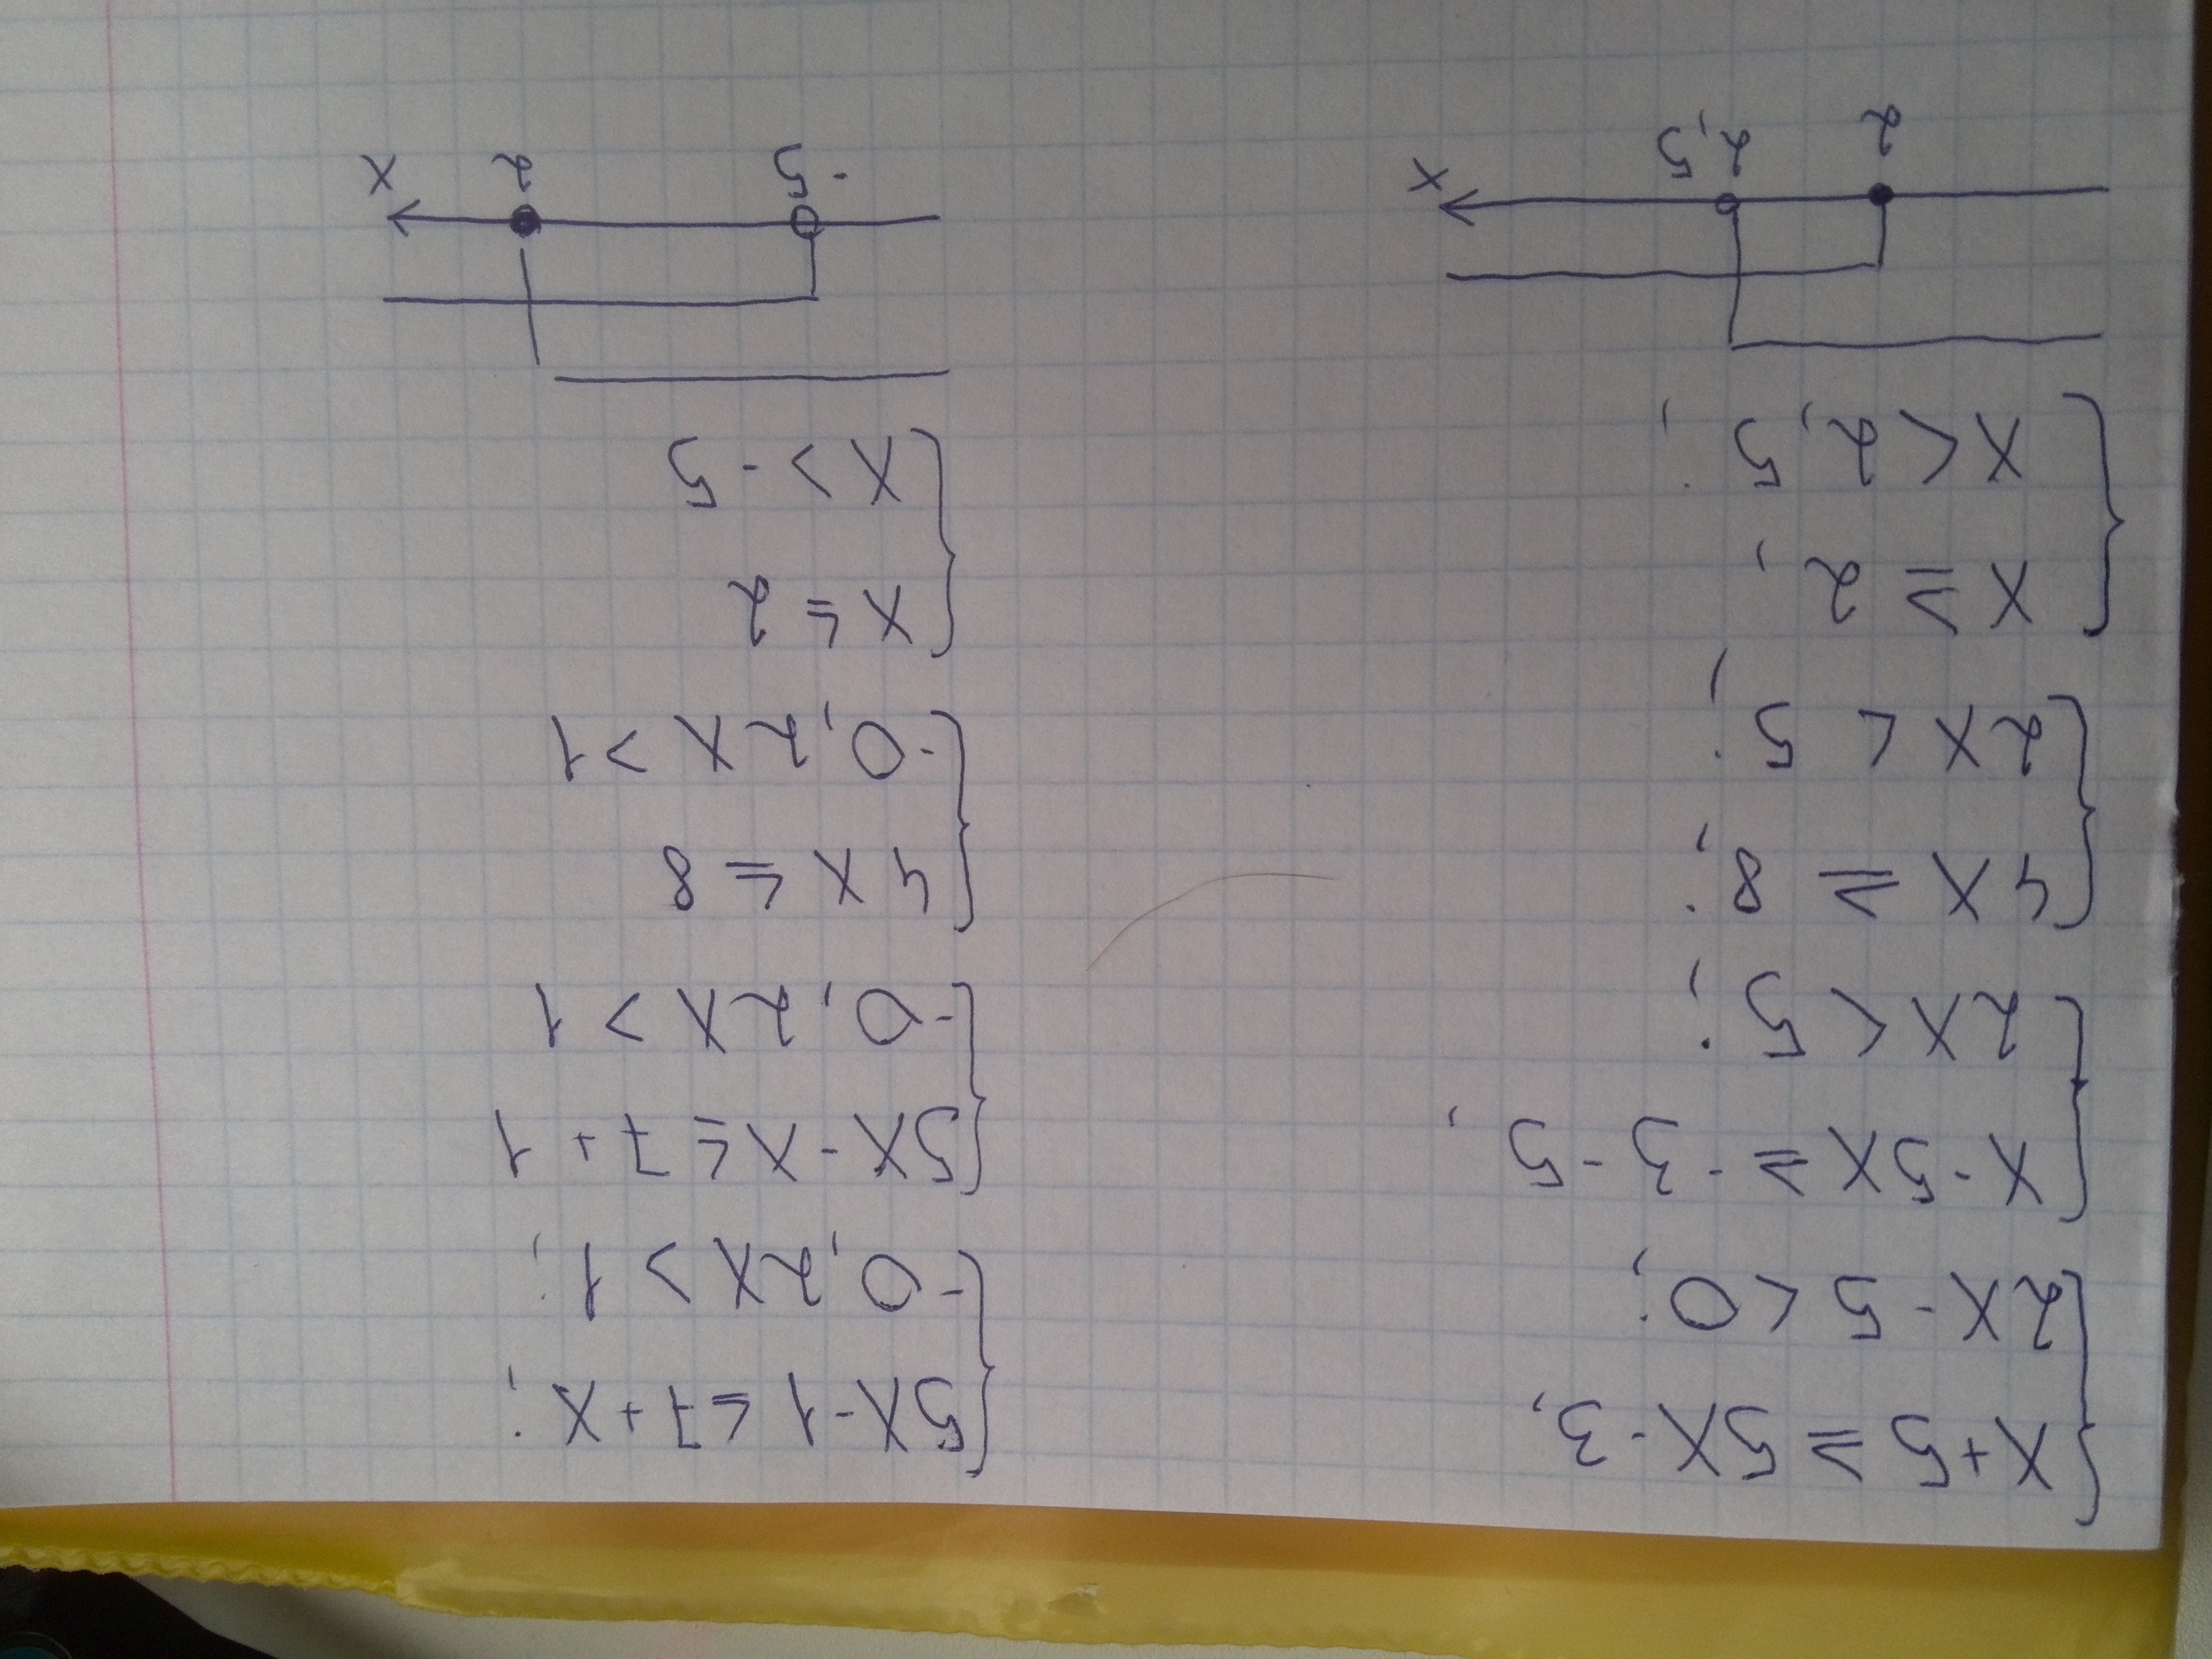 x+5 ≥ 5x-3,
2x-5 < 0;
x-5x ≥ -3-5,
2x < 5;
4x ≥ 8;
2x < 5;
x ≥ 2;
x < 2,5;
2 2,5 x
5x-1 ≤ 7+x;
-0,2x > 1;
5x-x ≤ 7+1
-0,2x > 1
4x ≤ 8
-0,2x > 1
x ≤ 2
x > -5
-5 2 x